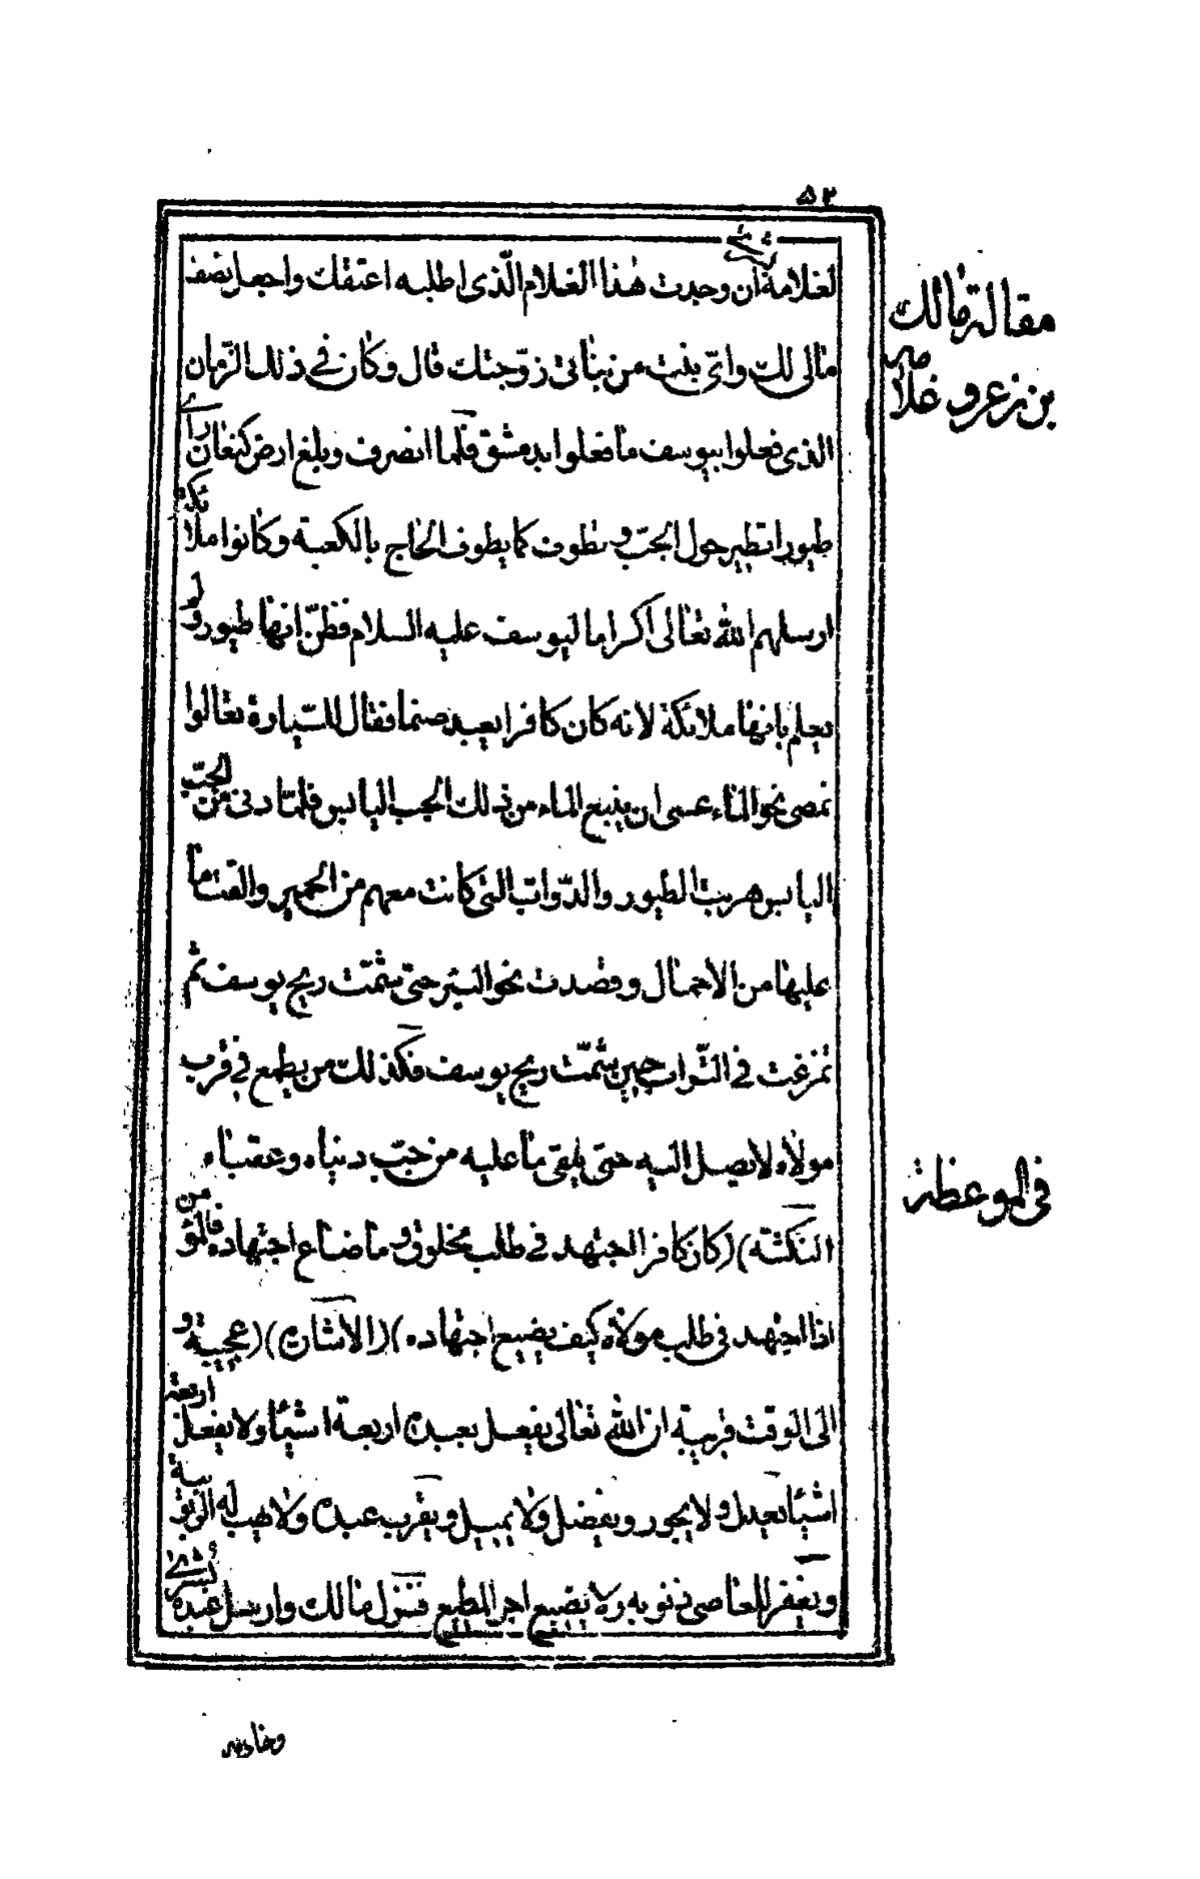 ٥٣
لغلامه بشرى ان وجدت هذا الغلام الّذى اطلبه اعتقتك واجعل نصف
مالى لك واىّ بنت من بناتى زوّجتك قال وكان فى ذلك الزّمان
الذى فعلوا بيوسف ما فعلوا بدمشق فلما انصرف وبلغ ارض كنعان راى
طيورا تطير حول الجبّ و تطوف كما يطوف الحاج بالكعبة وكانوا ملائكة
ارسلهم الله تعالى اكراما ليوسف عليه السلام فظنّ انها طيور ولم
يعلم بانها ملائكة لانه كان كافرا يعبد صنما فقال للسّيارة تعالوا
نمضى نحو الماء عسى ان ينبع الماء من ذلك الجب اليابس فلمّا دنى من الجبّ
اليابس هربت الطيور والدّواب التى كانت معهم من الحمير والقت ما
عليها من الاحمال وقصدت نحو البئر حتى شمّت ريح يوسف ثم
تمرغت فى التّراب حين شمّت ريح يوسف فكذلك من يطمع فى قرب
مولاه لا يصل اليه حتى يلقى ما عليه من حبّ دنياه وعقباه
النكتة) (كان كافرا اجتهد فى طلب مخلوق و ما ضاع اجتهاده فالمؤمن
اذا اجتهد فى طلب مولاه كيف يضيع اجتهاده) (الاشارة) (عجيبة و
الى الوقت قريبة ان الله تعالى يفعل بعبده اربعة اشيأ ولا يفعل اربعة
اشيأ يعدل و لا يجور ويفضل ولا يميل ويقرب عبده ولا يهب له
ويغفر للعاصى ذنوبه ولا يضيع اجر المطيع فنزل مالك وارسل عبده بشرى
مقالة مالك
بن زعر و غلامه
فى الموعظة